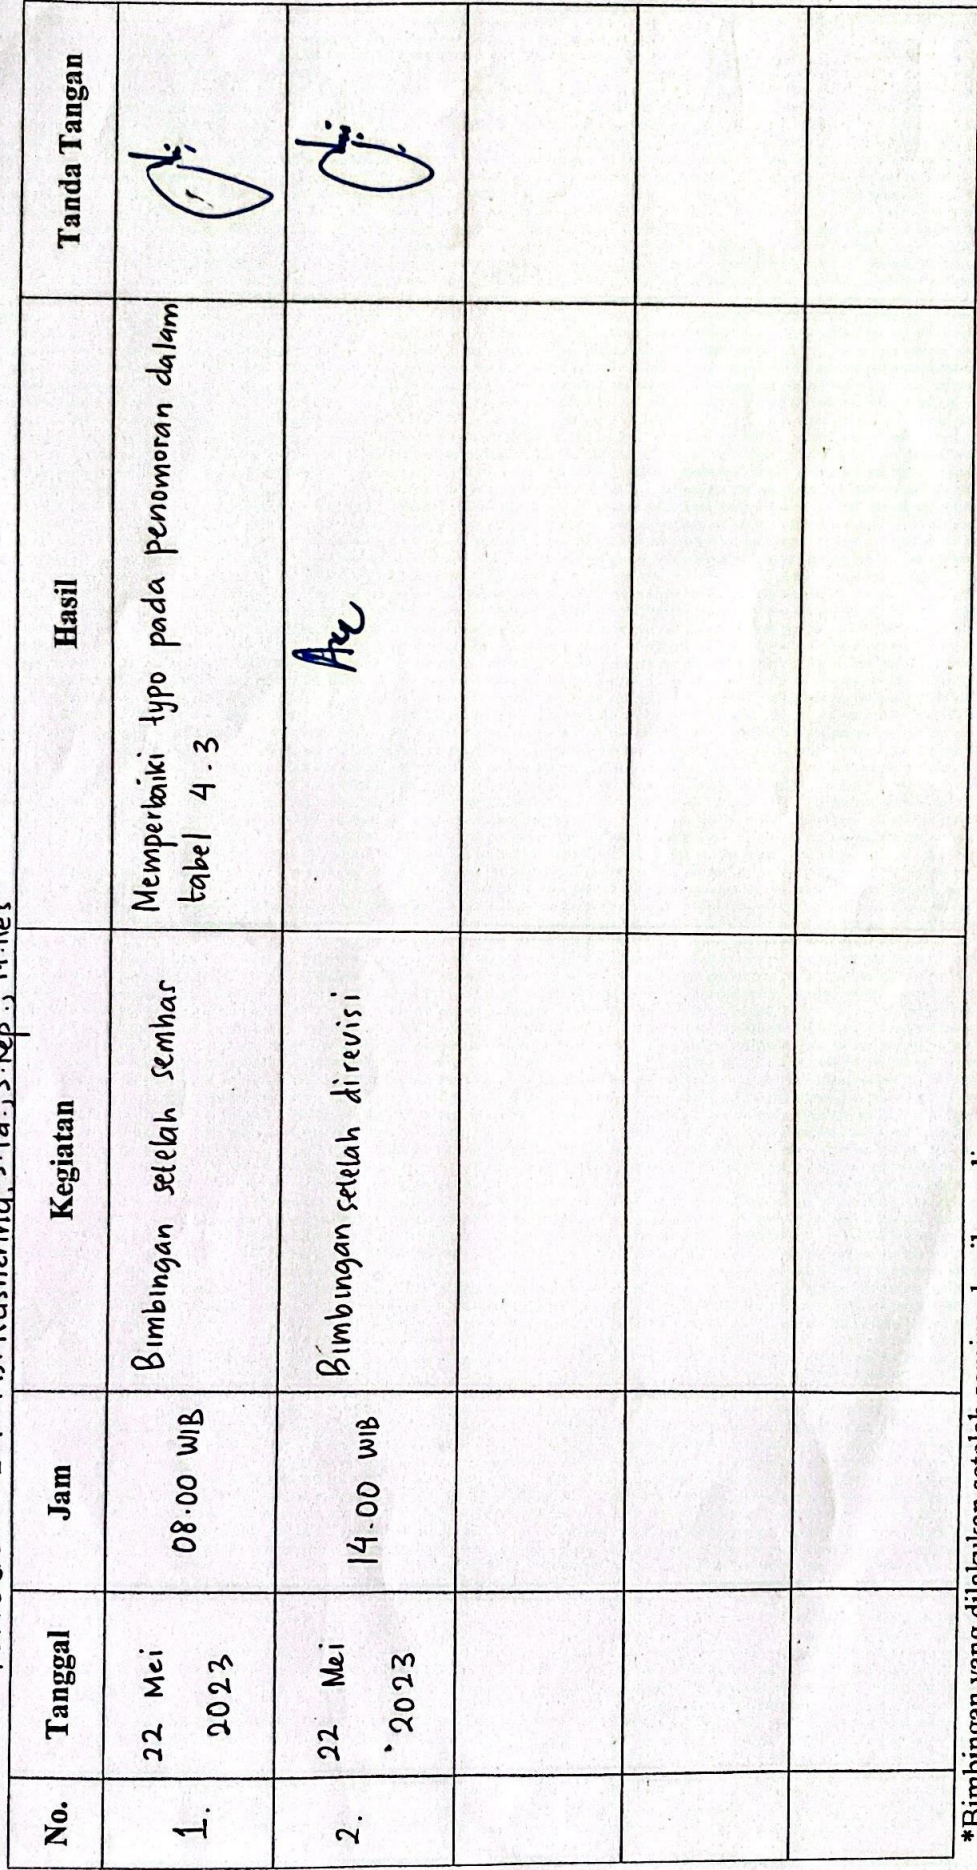 No. Tanggal Jam Kegiatan Hasil Tanda Tangan
1. 22 Mei 08.00 WIB Bimbingan setelah semhar Memperbaiki typo pada penomoran dalam
2023 tabel 4.3
2. 22 Mei 14.00 WIB Bimbingan setelah direvisi
2023
*Bimbingan yang dilakukan setelah